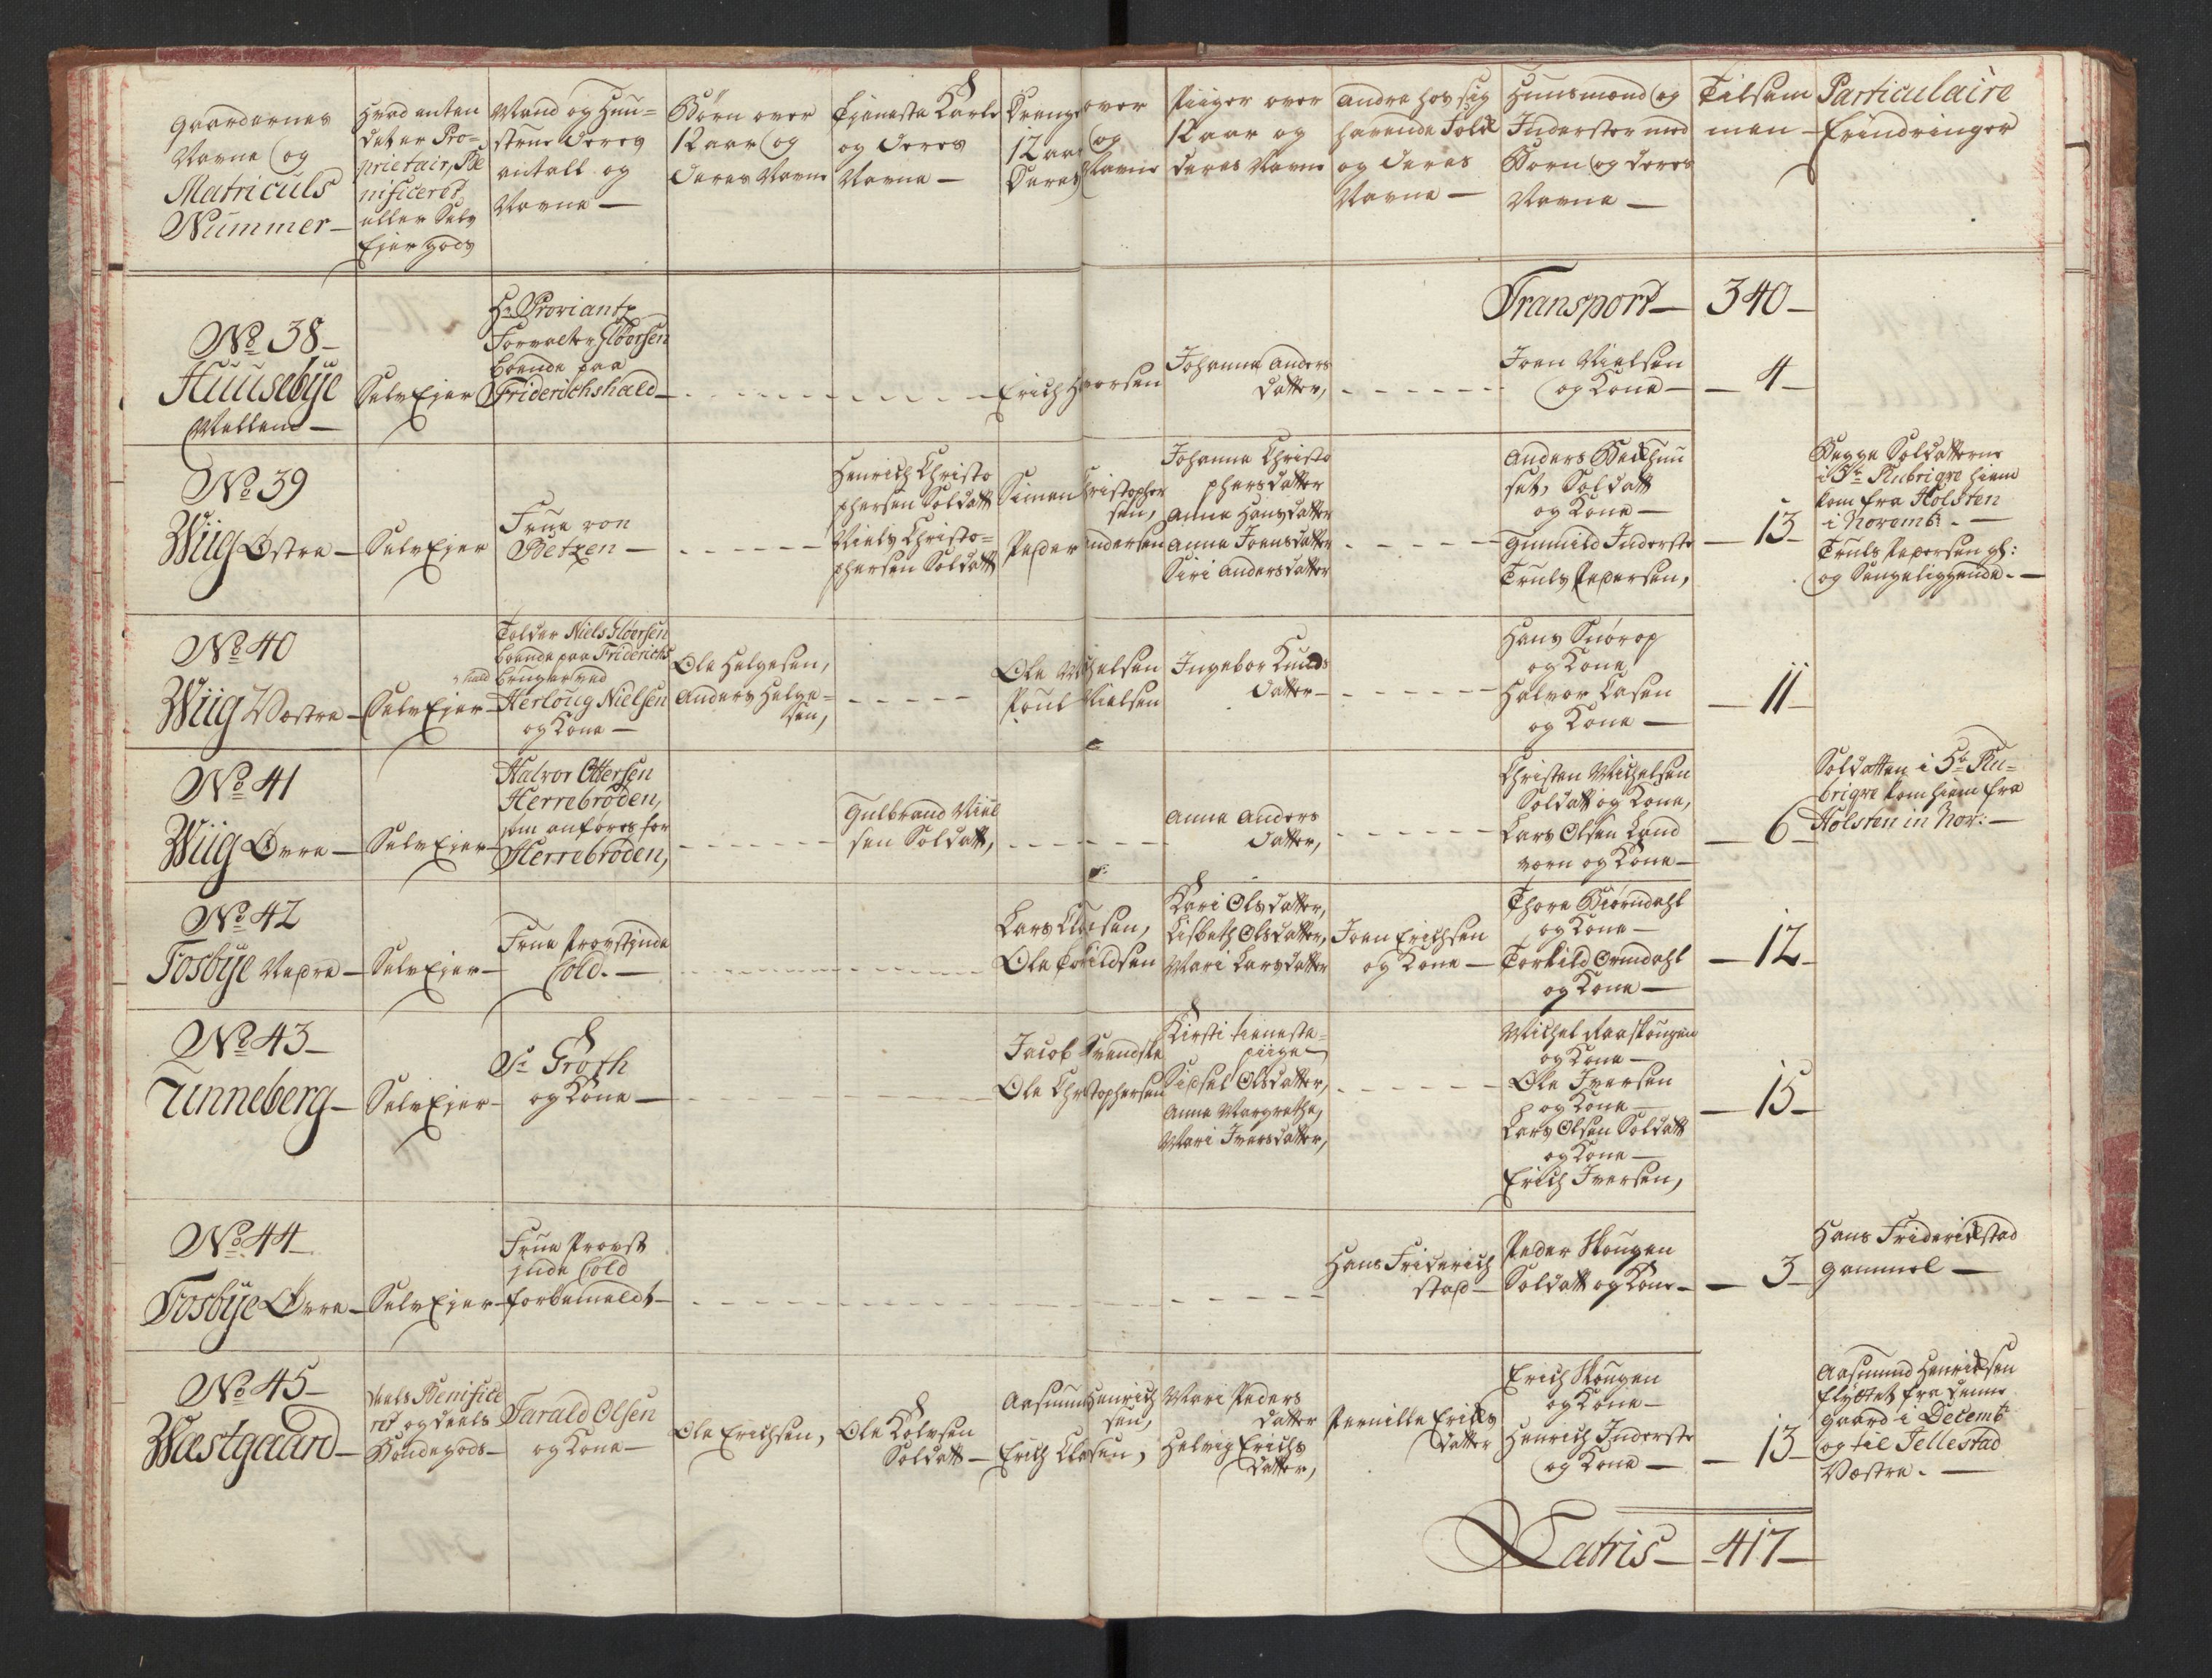 Gaardernes
Navne og
Matriculs
Nummer —
Hvad enten
det er Pro-
prietair, Be
nificeret,
eller Selv
Ejer gods
Mand og Huu-
strue deres
antall og
Navne —
Børn over
12 aar og
deres Navne
Tieneste Karle
og deres
Navne —
Drenge over
12 aar og
deres Navne
Piiger over
12 aar og
deres Navne
Andre hos sig
havende Folk
og deres
Navne —
Huusmænd og
Inderster med
Børn og deres
Navne —
Tilsam
men —
Particulaire
Erindringer
Transport — 340 —
No 38 —
Huusebÿe
Mellem —
Selv Ejer
Hr Proviant
Forvalter Gløersen
boende paa
Friderichshald —
Erich Hvorsen
Johanna Anders
datter,
Joen Nielsen
og Kone —
— 4 —
No 39
Wiig Østre —
Selv Ejer
Frue von
Betzen —
Henrich Christo
phersen Soldatt
Niels Christo-
phersen Soldatt
Simen Christopher
sen,
Peder Andersen
Johanna Christo
phersdatter
Anne Hansdatter
Anne Joensdatter
Siri Andersdatter
Anders Beckhuu
set, Soldatt
og Kone —
Gunnild Inderste
Truls Pedersen,
— 13 —
Begge Soldatterne
i 5te Rubrigve hiem
kom fra Holsten
i Novembr. —
Truls Pedersen gl:
og Sengeliggende. —
No 40
Wiig Væstre —
Selv Ejer —
Tolder Niels Gløersen
boende paa Friderichs
hald bruger ved
Herloug Nielsen
og Kone —
Ole Helgesen,
Anders Helge-
sen,
Ole Michelsen
Poul Nielsen
Ingebor Knuds
datter —
Hans Snørop
og Kone
Halvor Lasen
og Kone —
— 11 —
No 41
Wiig Øvre —
Selv Ejer —
Halvor Ottersen
Herrebrøden,
som anføres for
Herrebrøden,
Gulbrand Niel
sen Soldatt,
Anne Anders
datter,
Christen Michelsen
Soldatt og Kone,
Lars Olsen Land
værn og Kone —
— 6 —
Soldatten i 5te Ru-
brigve kom hiem fra
Holsten in Nov: —
No 42
Tosbÿe Nedre —
Selv Ejer —
Frue Provstinde
Cold. —
Lars Clasen,
Ole Torkildsen
Kari Olsdatter,
Lisbeth Olsdatter,
Mari Larsdatter
Joen Erichsen
og Kone —
Thore Biørndahl
og Kone —
Torkild Ormdahl
og Kone —
— 12 —
No 43 —
Tunneberg —
Selv Ejer —
Sr Groth
og Kone —
Jacob Svendske
Ole Christophersen
Kirsti tieneste-
piige
Sidsel Olsdatter,
Anne Margrethe,
Mari Iversdatter,
Michel Raaskougen
og Kone —
Ole Iversen
og Kone —
Lars Olsen Soldatt
og Kone —
Erich Iversen,
— 15 —
No 44
Tosbÿe Øvre —
Selv Ejer —
Frue Provst
inde Cold
forbemeldt —
Hans Friderich
stad —
Peder Skougen
Soldatt og Kone —
— 3 —
Hans Friderickstad
gammel —
No 45 —
Wæstgaard —
deels Benifice
ret og deels
Bondegods —
Harald Olsen
og Kone —
Ole Erichsen,
Ole Kolvsen
Soldatt —
Aasmund Henrich
sen,
Erich Clasen,
Mari Peders
datter
Helvig Erichs
datter,
Pernille Erichs
datter
Erich Skougen
og Kone —
Henrich Inderste
og Kone —
— 13 —
Aasmund Henricksen
flyttet fra denne
gaard i Decembr
og til Tellestad
Væstre. —
Latris — 417 —